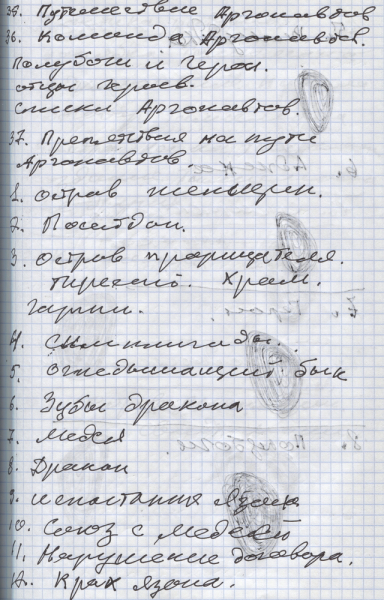 35. Путешествие Аргонавтов
36. Команда Аргонавтов.
Полубоги и Герои.
отцы героев.
списки Аргонавтов.
37. Препятствия на пути
Аргонавтов.
1. остров женщин.
2. Посейдон.
3. остров прорицателя.
Тиресий. Храм.
гарпии.
4.
5. огнедышащий бык
6. Зубы дракона
7. Медея
8. Дракон
9. испытания Язона
10. Союз с Медеей
11. Нарушение договора.
12. Крах Язона.